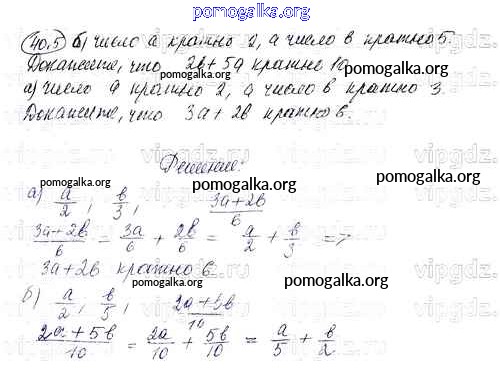 pomogalka.org
40.5 б) число а кратно 2, а число в кратно 5.
Докажите, что 2в + 5а кратно 10
pomogalka.org pomogalka.org
а) число а кратно 2, а число в кратно 3.
Докажите, что 3а + 2в кратно 6.
vipgdz.ru vipgdz.ru
Решение:
pomogalka.org pomogalka.org
а) а/2, в/3, 3а+2в/6
3а+2в/6 = 3а/6 + 2в/6 = а/2 + в/3 =>
3а+2в кратно 6
pomogalka.org pomogalka.org
б) а/2, в/5, 2а+5в/10
2а+5в/10 = 2а/10 + 5в/10 = а/5 + в/2
pomogalka.org